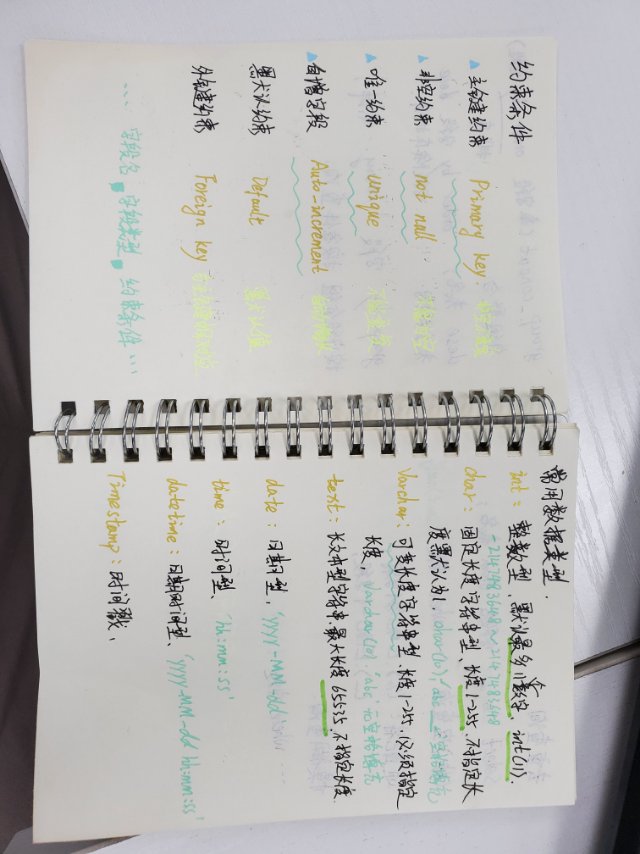 约束条件
▲主键约束 Primary key:
▲非空约束 not null 不能为空
▲唯一约束 unique 不能重复
▲自增字段 Auto-increment 自动增长
默认约束 Default 默认值
外键约束 Foreign key
... 字段名 字段类型 约束条件 ...
常用数据类型.
int: 整数型、默认最多11个数字、int(11).
-2147483648~2147483648
char: 固定长度字符串型、长度1-255、不指定长
度默认为1. char(10) 'abc
Varchar: 可变长度字符串型、长度1-255、必须指定
长度、 varchar(10) 'abc' 无空格填充
text: 长文本型字符串.最大长度65535 不指定长度
date: 日期型、 'yyyy-MM-dd'
time: 时间型、 'hh:mm:ss'
datetime: 日期时间型、 'yyyy-MM-dd hh:mm:ss'
Timestamp: 时间戳、